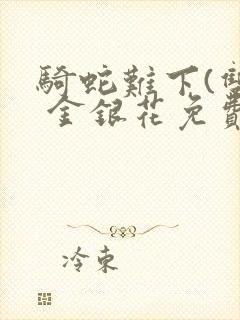 騎蛇難下(雙
金銀花免費
冷東